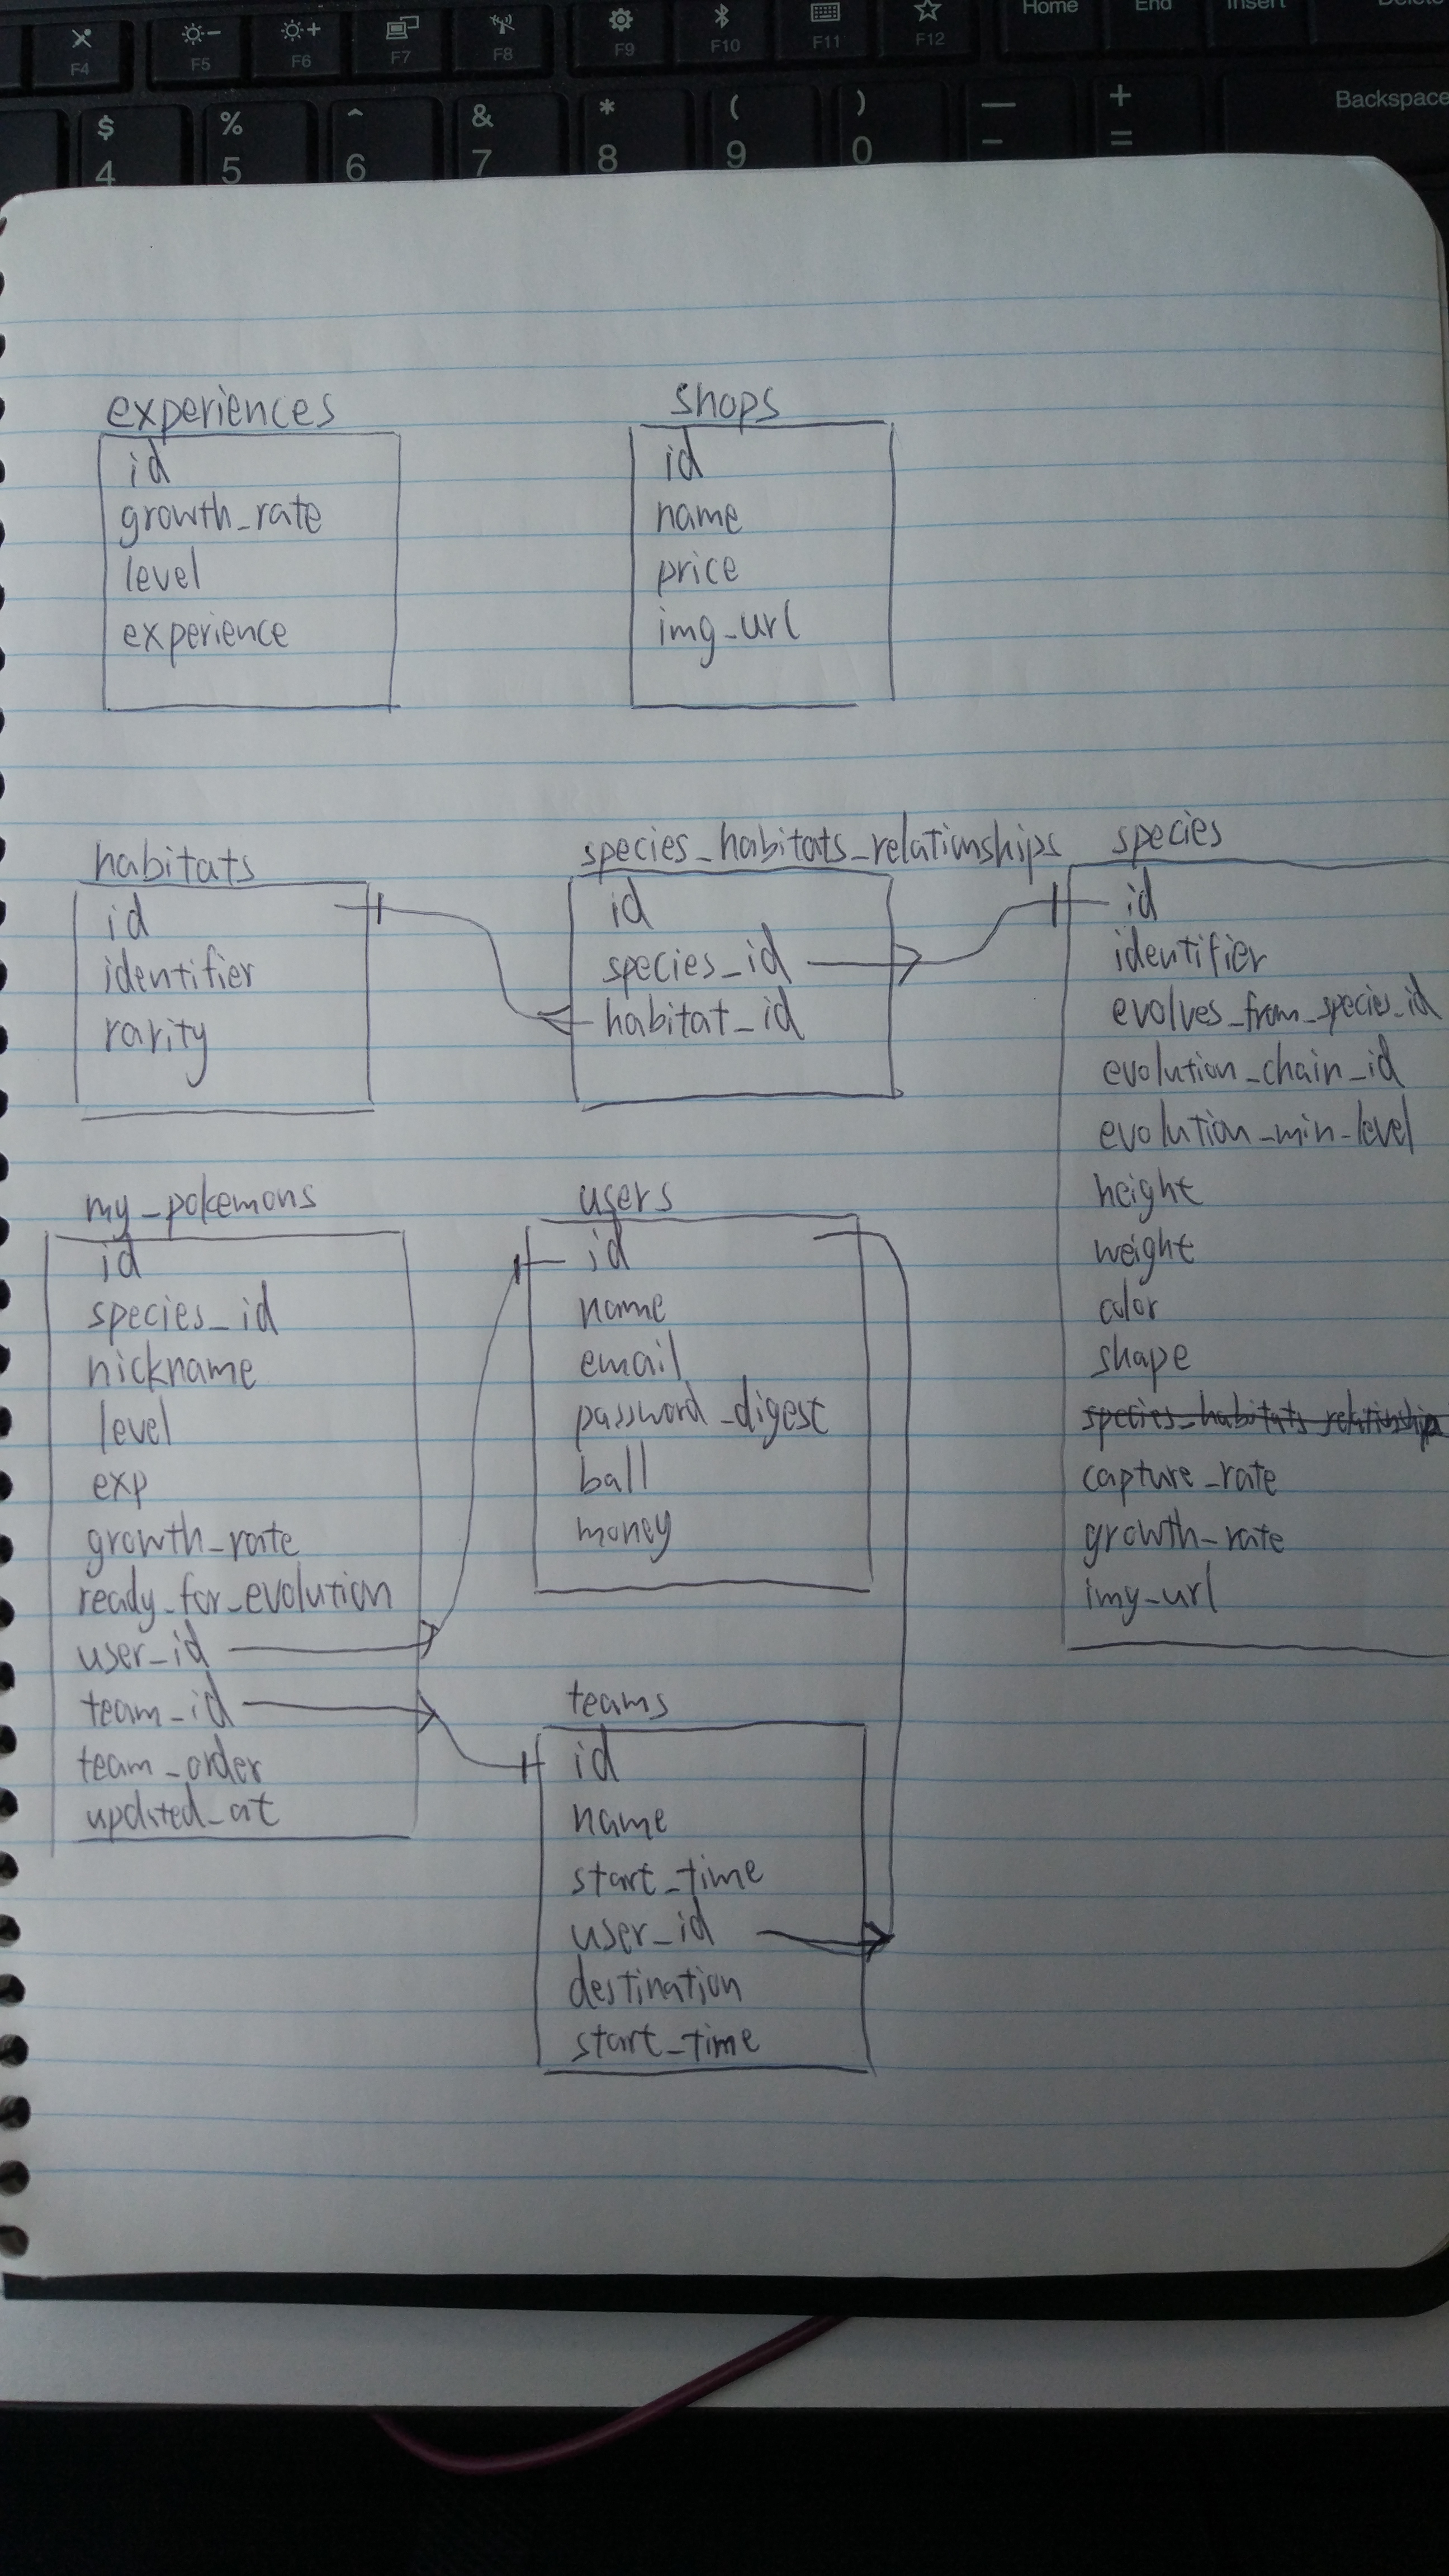 Home End Insert Delete
F4 F5 F6 F7 F8 F9 F10 F11 F12
$ % ^ & * ( ) — + Backspace
4 5 6 7 8 9 0 - =
experiences
id
growth_rate
level
experience
shops
id
name
price
img_url
habitats
id
identifier
rarity
species_habitats_relationships
id
species_id
habitat_id
species
id
identifier
evolves_from_species_id
evolution_chain_id
evolution_min_level
height
weight
color
shape
species_habitats_relationship
capture_rate
growth_rate
img_url
my_pokemons
id
species_id
nickname
level
exp
growth_rate
ready_for_evolution
user_id
team_id
team_order
updated_at
users
id
name
email
password_digest
ball
money
teams
id
name
start_time
user_id
destination
start_time